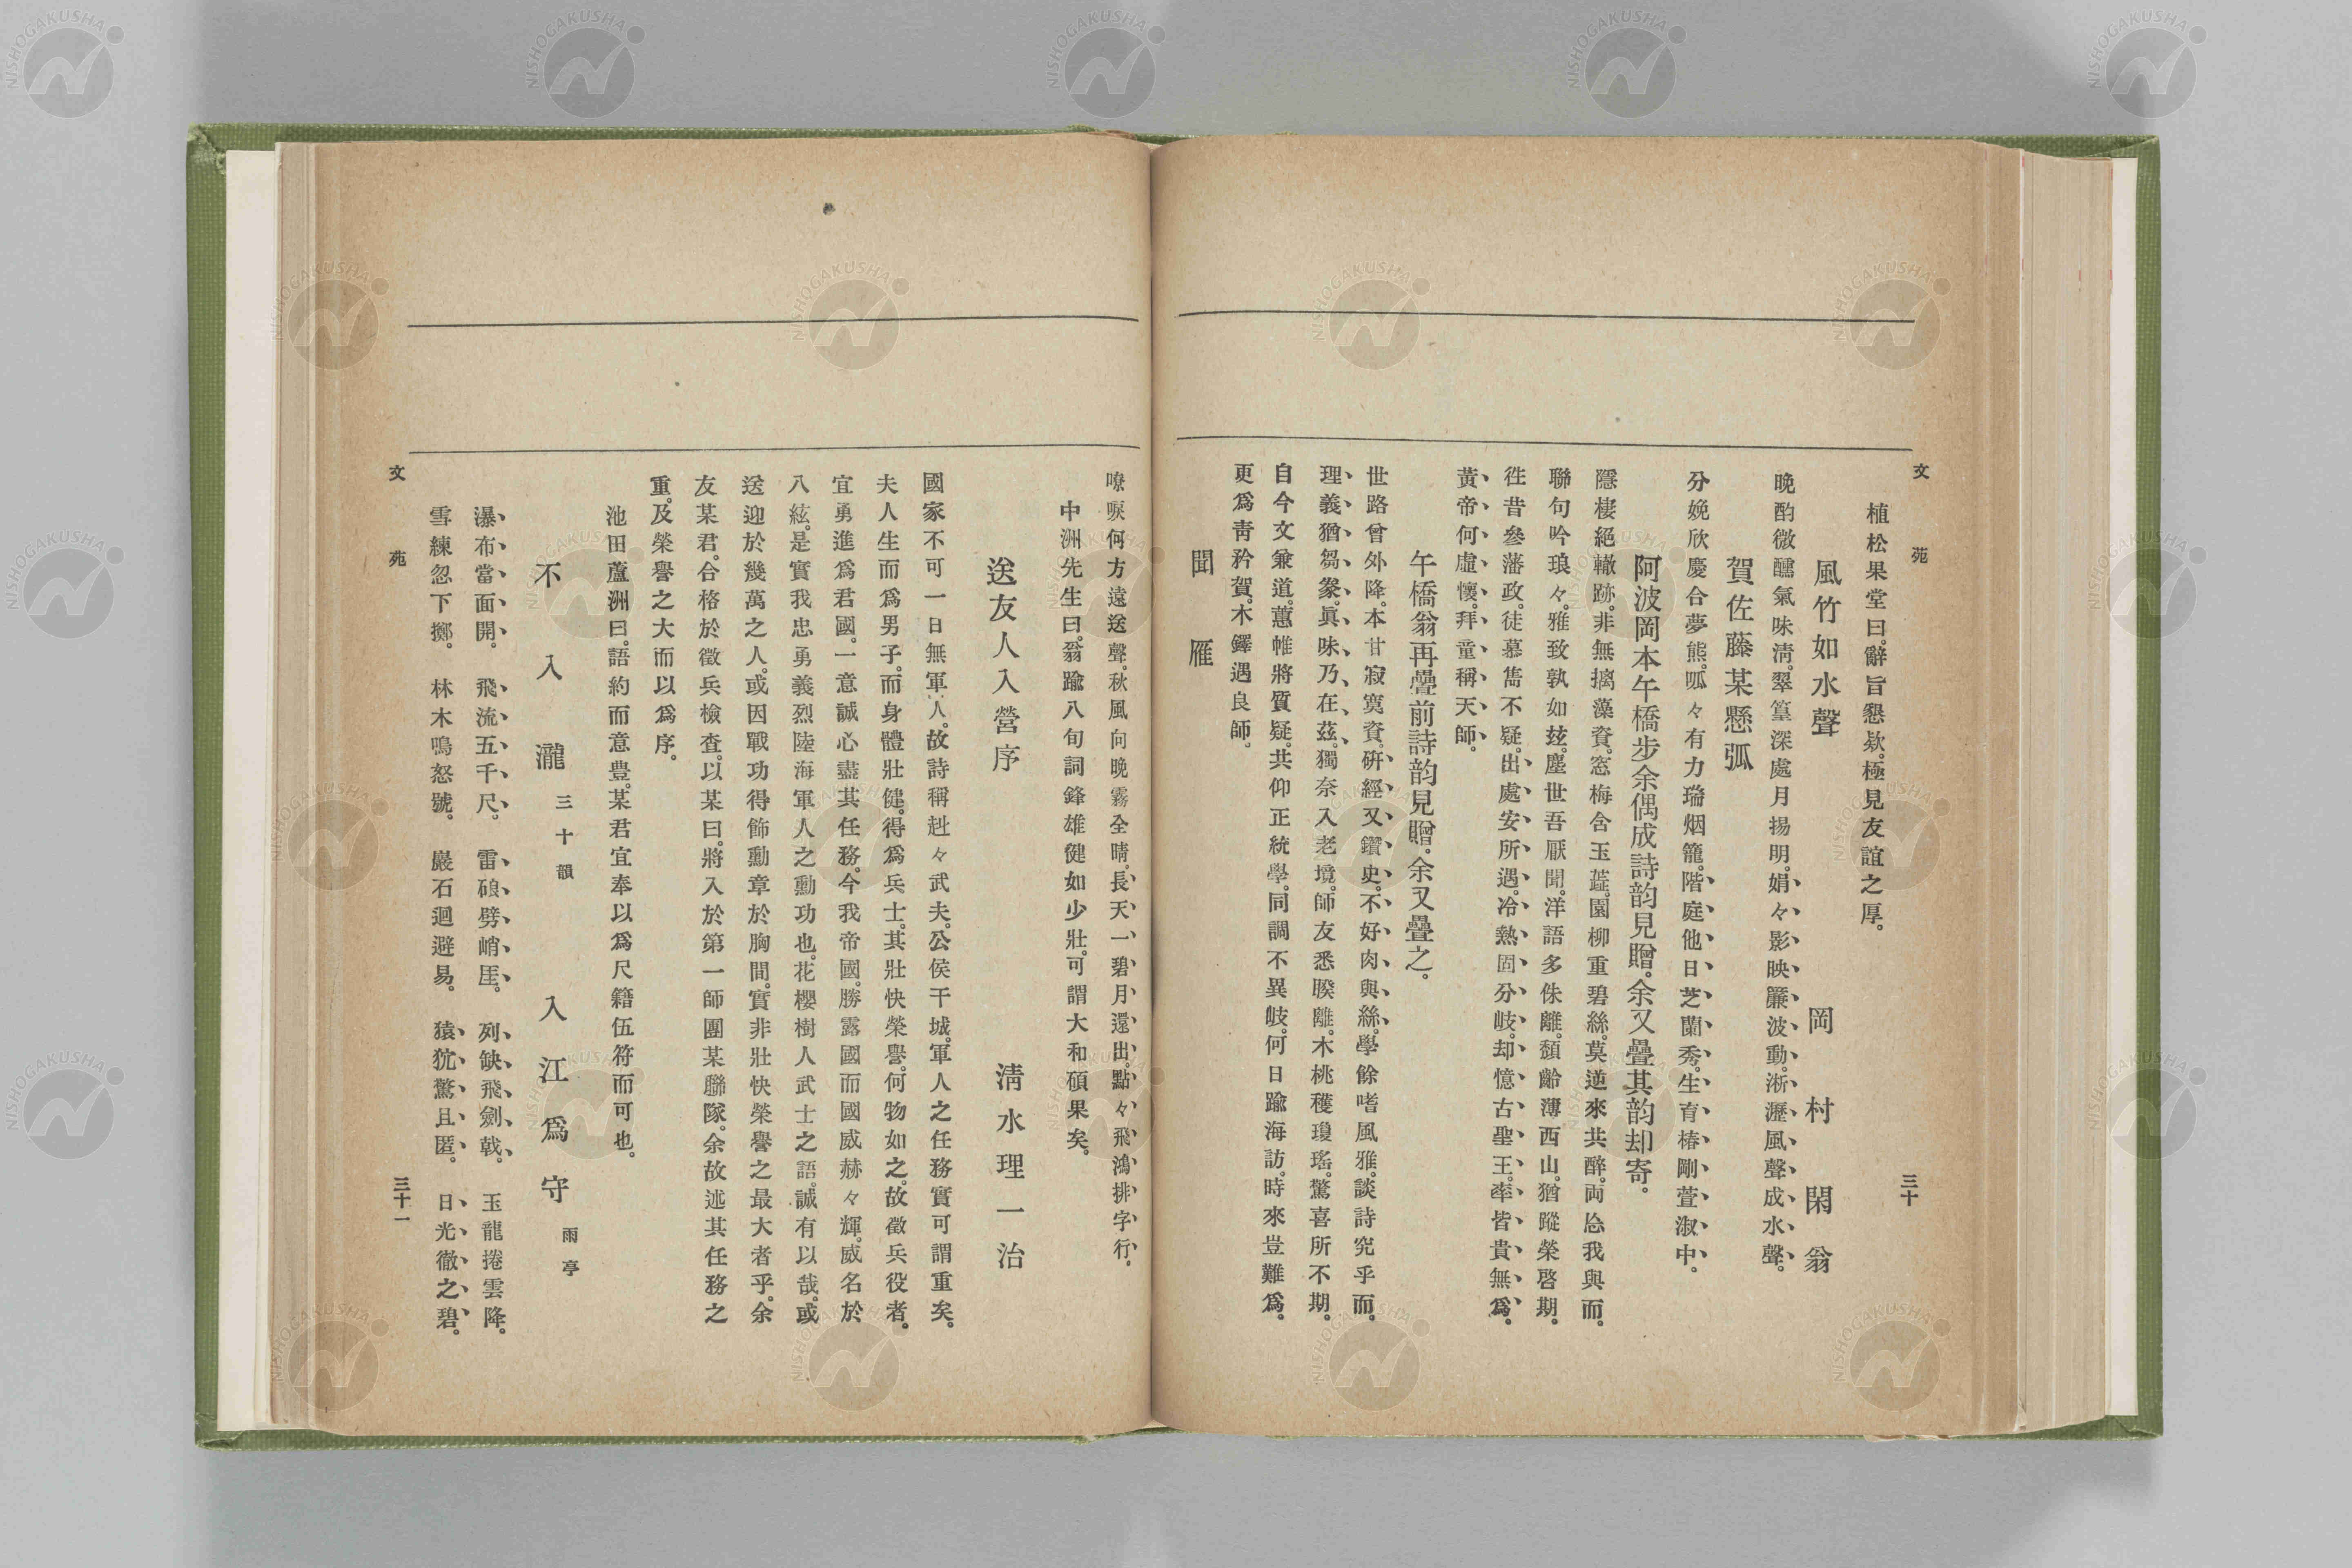 文苑
三十
植松果堂曰。辭旨懇欵。極見友誼之厚。
風竹如水聲 岡村閑翁
晩酌微醺氣味淸。翠篁深處月揚明。娟々影映簾波動。淅瀝風聲成水聲。
賀佐藤某懸弧
分娩欣慶合夢熊。呱々有力瑞烟籠。階庭他日芝蘭秀。生育椿剛萱淑中。
阿波岡本午橋步余偶成詩韵見贈。余又疊其韵却寄。
隱棲絕轍跡。非無摛藻資。窓梅含玉蘂。園柳重碧絲。莫逆來共醉。両恊我與而。
聯句吟琅々。雅致孰如玆。塵世吾厭聞。洋語多侏離。頽齡薄西山。猶蹤榮啓期。
徃昔參藩政。徒慕雋不疑。出處安所遇。冷熱固分岐。却憶古聖王。率皆貴無爲。
黃帝何虛懷。拜童稱天師。
午橋翁再疊前詩韵見贈。余又疊之。
世路曾外降。本甘寂寞資。硏經又鑽史。不好肉與絲。學餘嗜風雅。談詩究乎而。
理義猶芻豢。眞味乃在玆。獨奈入老境。師友悉睽離。木桃穫瓊瑤。驚喜所不期。
自今文兼道。蕙帷將質疑。共仰正統學。同調不異岐。何日踰海訪。時來豈難爲。
更爲靑衿賀。木鐸遇良師。
聞雁
嘹唳何方遠送聲。秋風向晚霧全晴。長天一碧月還出。點々飛鴻排字行。
中洲先生曰。翁踰八旬詞鋒雄健如少壯。可謂大和碩果矣。
送友人入營序 淸水理一治
國家不可一日無軍人。故詩稱赳々武夫。公侯干城。軍人之任務實可謂重矣。
夫人生而爲男子。而身體壯健。得爲兵士。其壯快榮譽。何物如之。故徵兵役者。
宜勇進爲君國。一意誠心盡其任務。今我帝國。勝露國而國威赫々輝。威名於
八絃。是實我忠勇義烈陸海軍人之勳功也。花櫻樹人武士之語。誠有以哉。或
送迎於幾萬之人。或因戰功得飾勳章於胸間。實非壯快榮譽之最大者乎。余
友某君。合格於徵兵檢査。以某曰。將入於第一師團某聯隊。余故述其任務之
重。及榮譽之大而以爲序。
池田蘆洲曰。語約而意豊。某君宜奉以爲尺籍伍符而可也。
不入瀧 三十韻 入江爲守 雨亭
瀑布當面開。 飛流五千尺。 雷硠劈峭厓。 列缺飛劍戟。 玉龍捲雲降。
雪練忽下擲。 林木鳴怒號。 巖石廻避易。 猿狖驚且匿。 日光徹之碧。
文苑
三十一